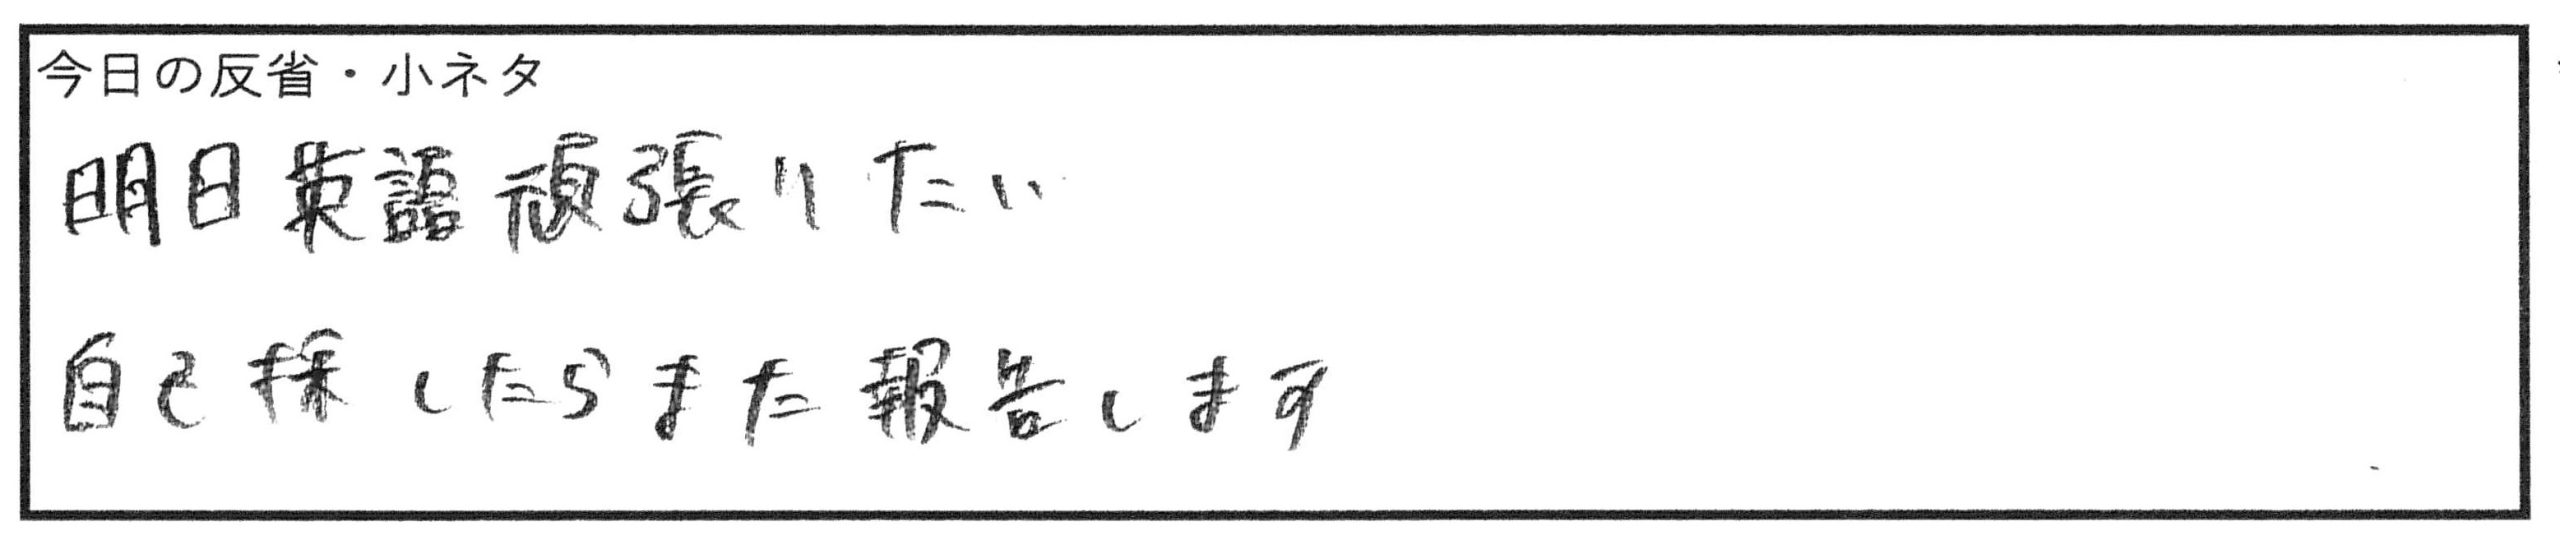 今日の反省・小ネタ
明日英語頑張りたい
自己採したらまた報告します